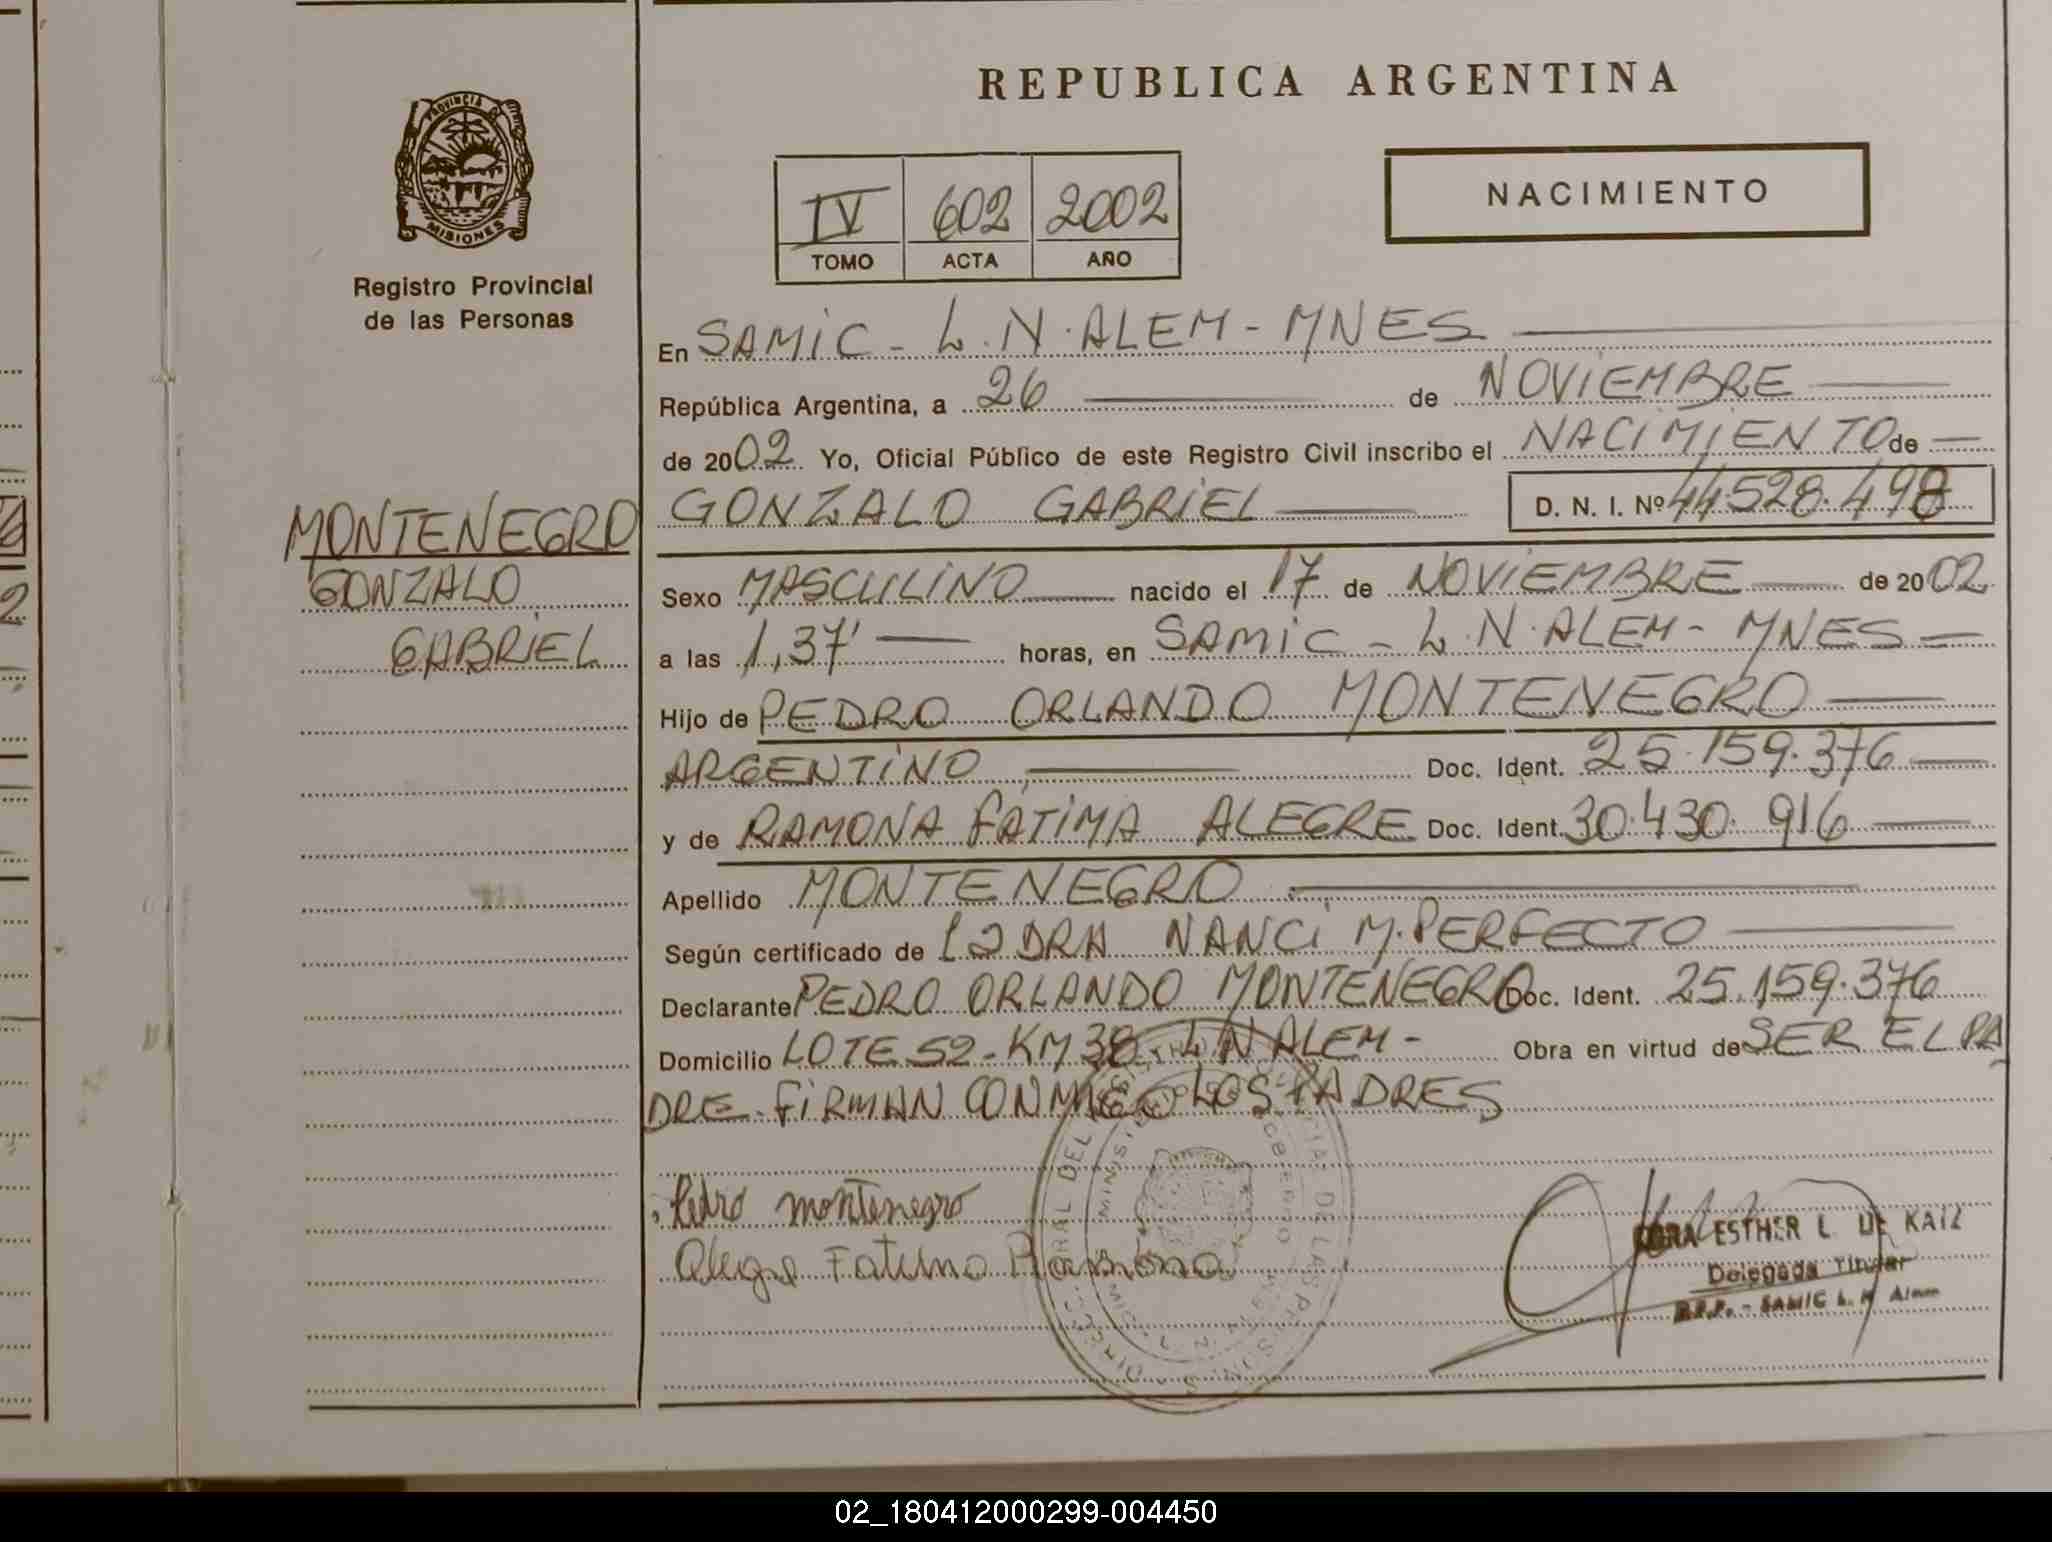 REPUBLICA ARGENTINA
PROVINCIA DE
MISIONES
Registro Provincial
de las Personas
IV 602 2002
TOMO ACTA AÑO
NACIMIENTO
En SAMIC - L.N.ALEM - MNES
República Argentina, a 26 de NOVIEMBRE
de 2002 Yo, Oficial Público de este Registro Civil inscribo el NACIMIENTO de
GONZALO GABRIEL D. N. I. Nº 44.528.498
MONTENEGRO
GONZALO
GABRIEL
Sexo MASCULINO nacido el 17 de NOVIEMBRE de 2002
a las 1,37' horas, en SAMIC - L.N.ALEM - MNES
Hijo de PEDRO ORLANDO MONTENEGRO
ARGENTINO Doc. Ident. 25.159.376
y de RAMONA FATIMA ALEGRE Doc. Ident. 30.430.916
Apellido MONTENEGRO
Según certificado de DRA NANCI M. PERFECTO
Declarante PEDRO ORLANDO MONTENEGRO Doc. Ident. 25.159.376
Domicilio LOTE 52 - KM 38 - L N ALEM - Obra en virtud de SER EL PA
DRE - FIRMAN CONMIGO LOS PADRES
Pedro montenegro
Alegre Fatima Ramona
ESTHER L. DE KAIZ
Delegada Titular
R.P.P. - SAMIC L. N. Alem
02_180412000299-004450